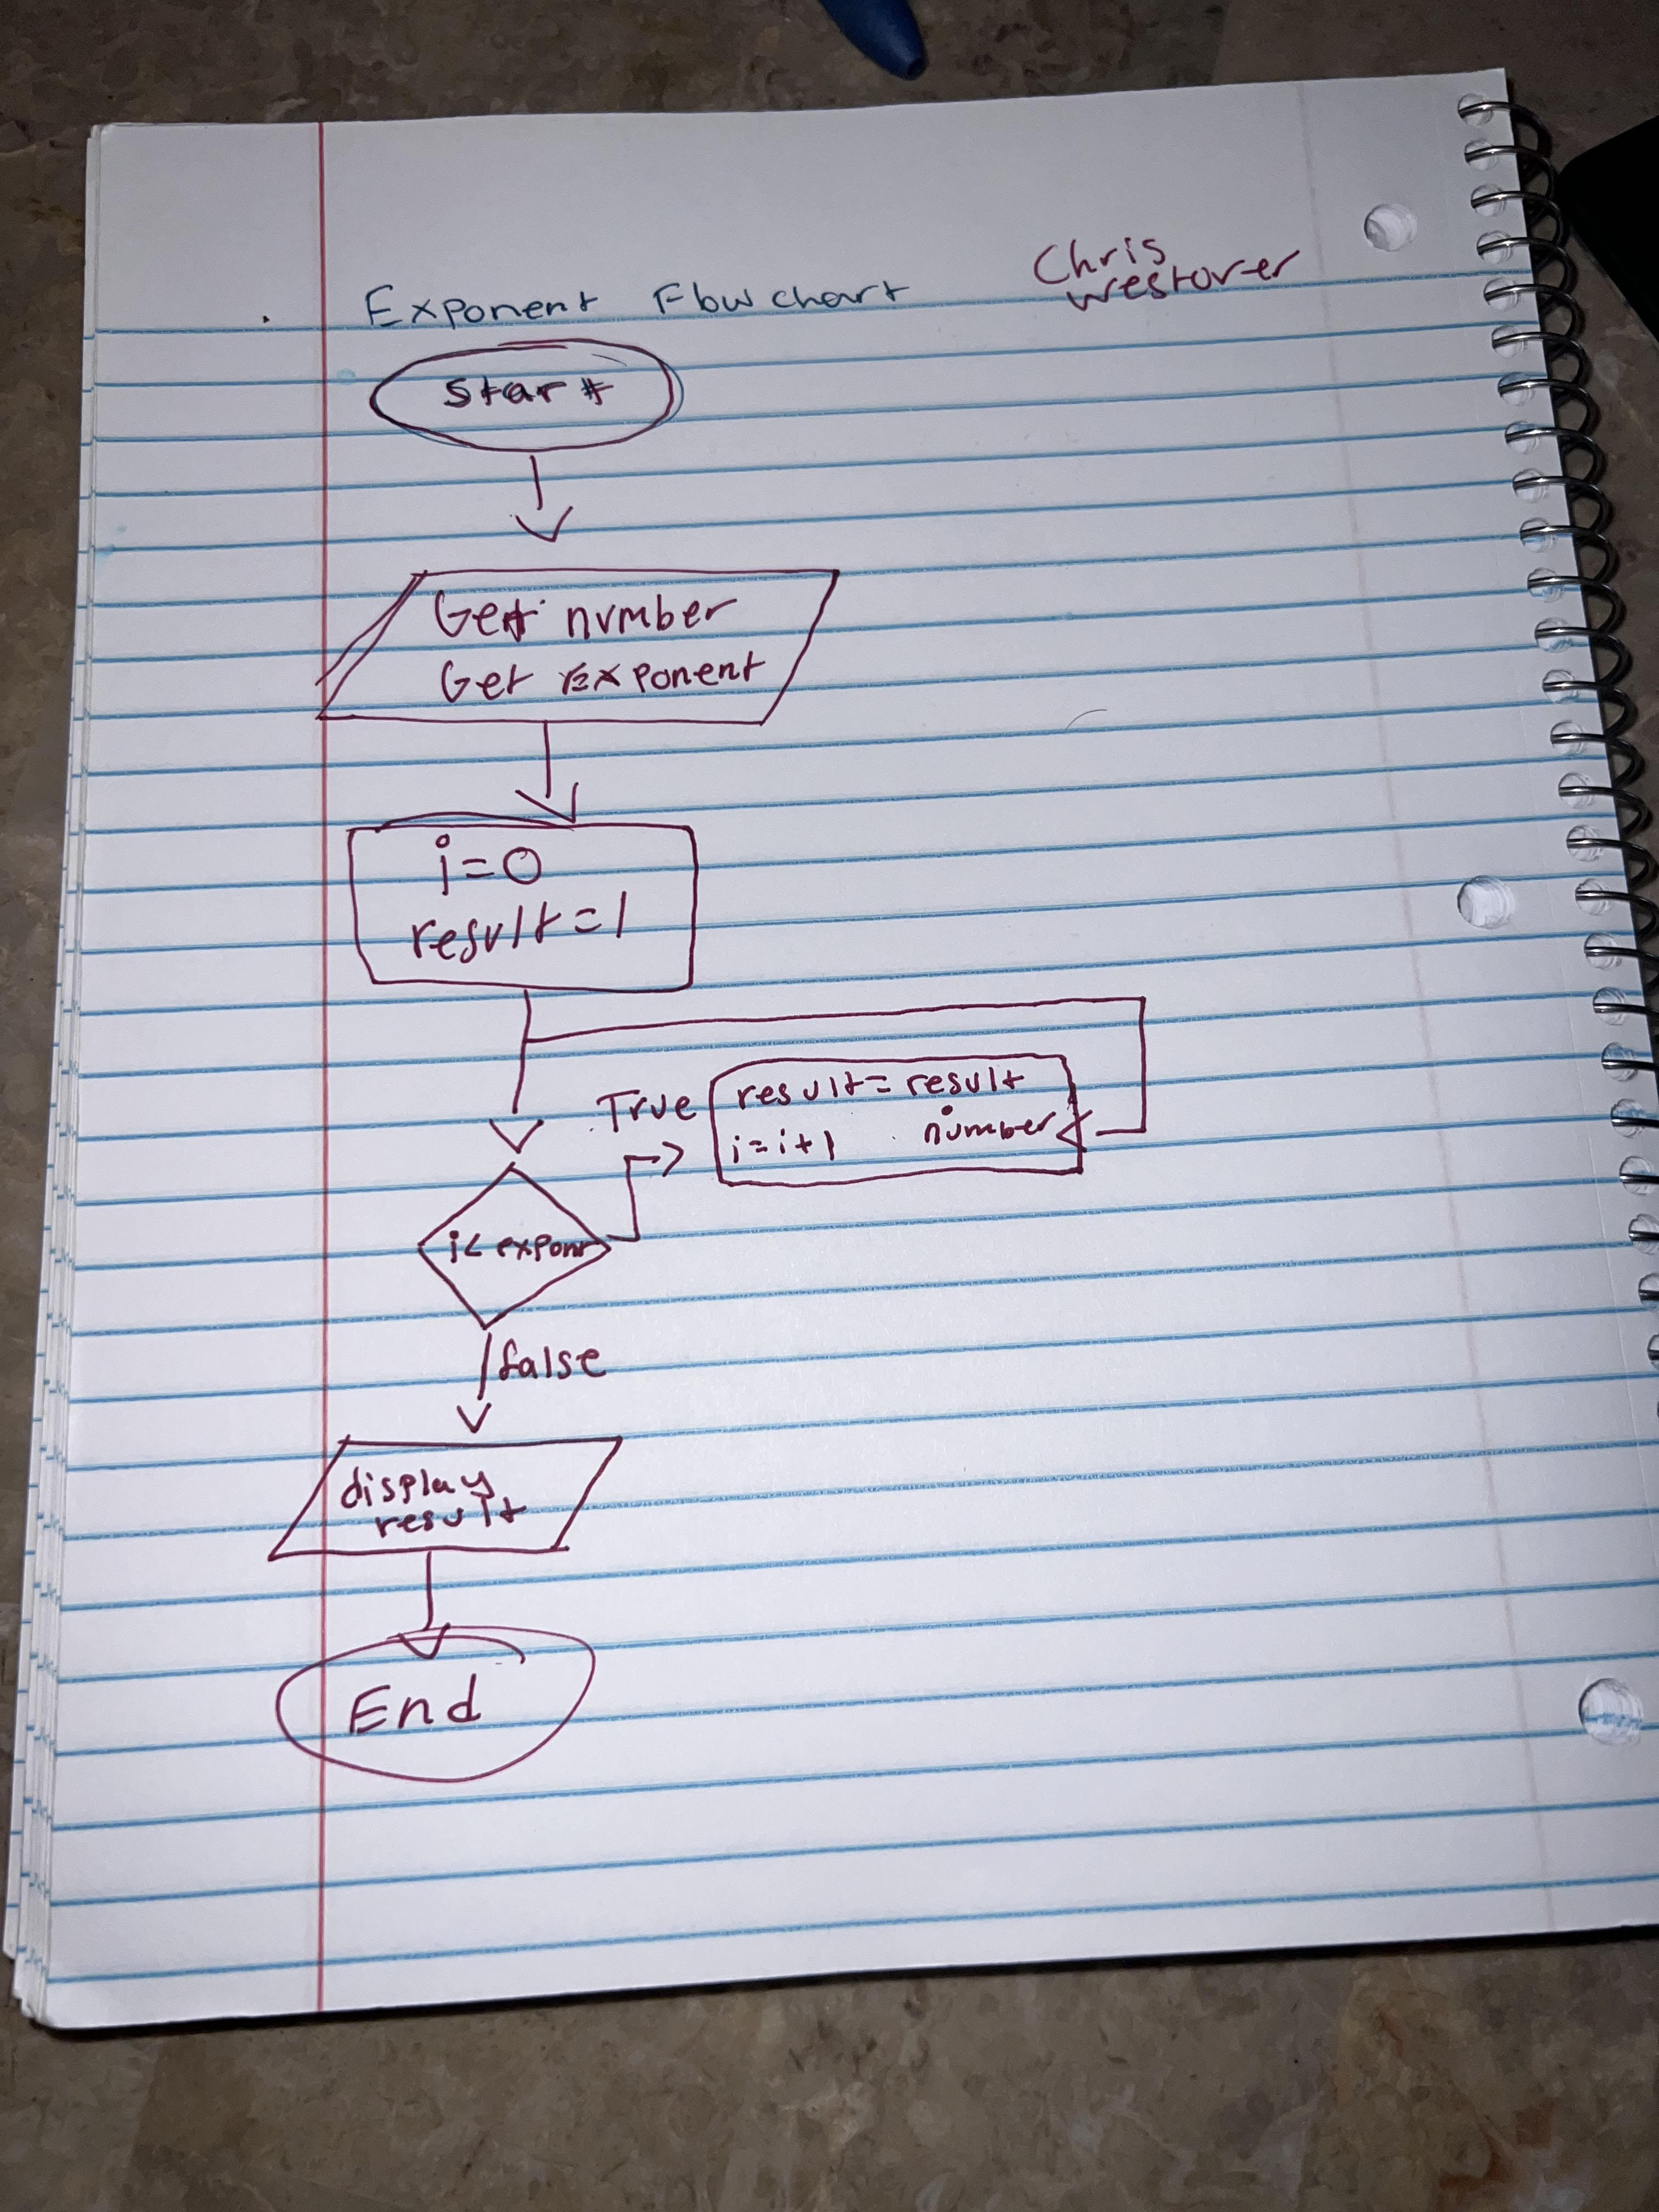 Exponent Flowchart
Chris
Westover
Start
Get number
Get Exponent
i=0
result=1
True
result=result
i=i+1 number
i< expon
false
display
result
End